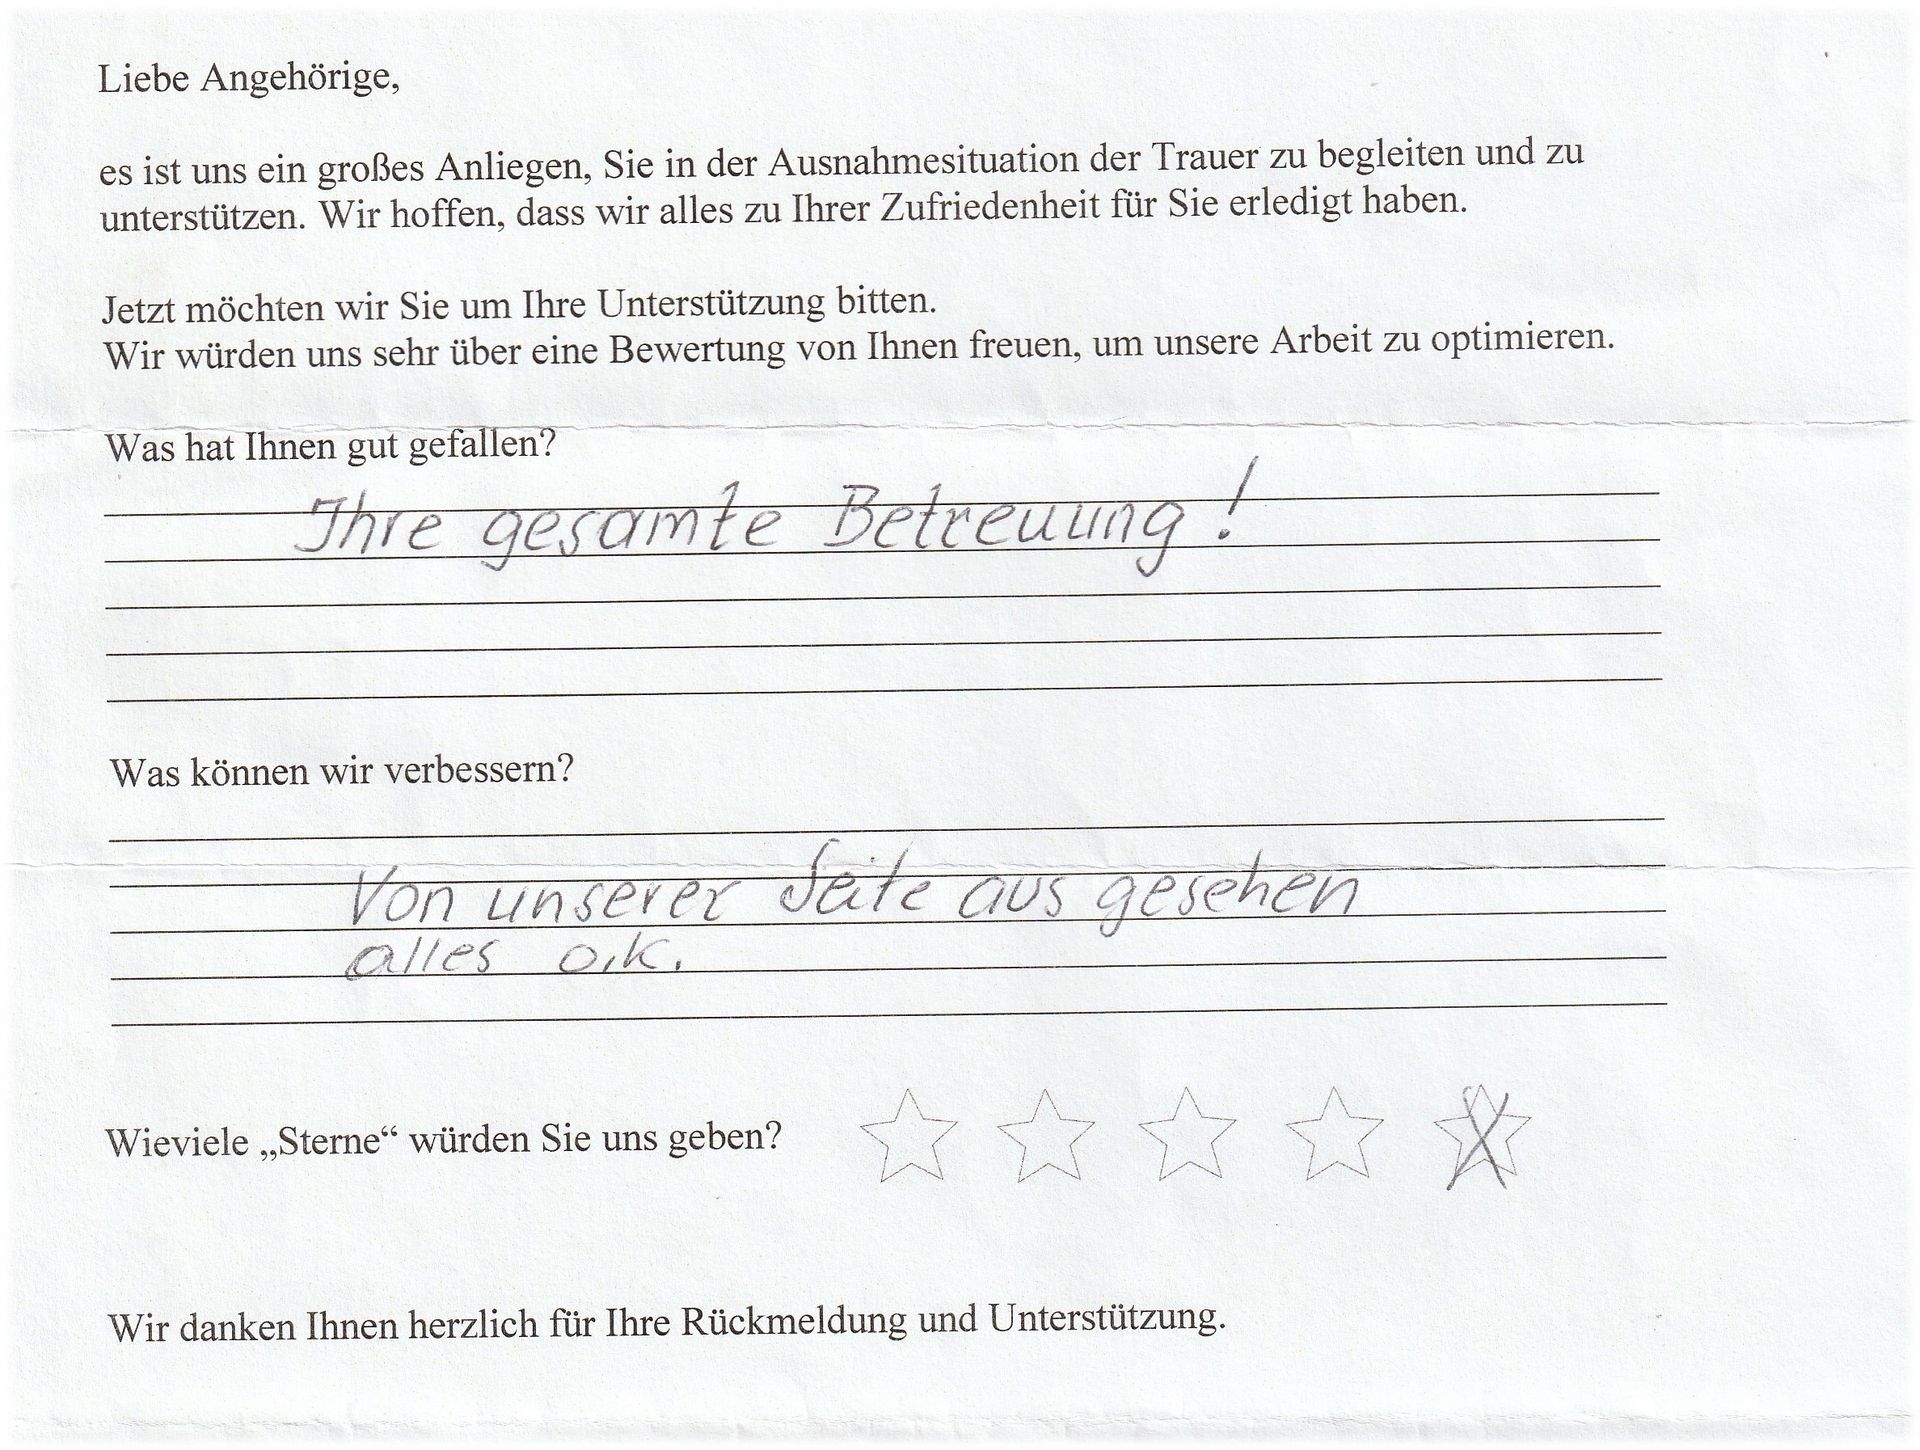 Liebe Angehörige,
es ist uns ein großes Anliegen, Sie in der Ausnahmesituation der Trauer zu begleiten und zu
unterstützen. Wir hoffen, dass wir alles zu Ihrer Zufriedenheit für Sie erledigt haben.
Jetzt möchten wir Sie um Ihre Unterstützung bitten.
Wir würden uns sehr über eine Bewertung von Ihnen freuen, um unsere Arbeit zu optimieren.
Was hat Ihnen gut gefallen?
Ihre gesamte Betreuung!
Was können wir verbessern?
Von unserer Seite aus gesehen
alles o.k.
Wieviele „Sterne“ würden Sie uns geben?
Wir danken Ihnen herzlich für Ihre Rückmeldung und Unterstützung.